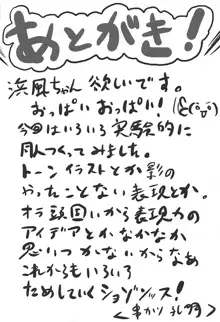 あとがき!
浜風ちゃん 欲しいです。
おっぱいおっぱい!
今回はいろいろ実験的に
月人つくってみました。
トーンイラストとか影の
やったことない表現とか。
オラ頭固いから表現力の
アイデアとかなかなか
思いつかないからなあ
これからもいろいろ
ためしていくショゾンッス!